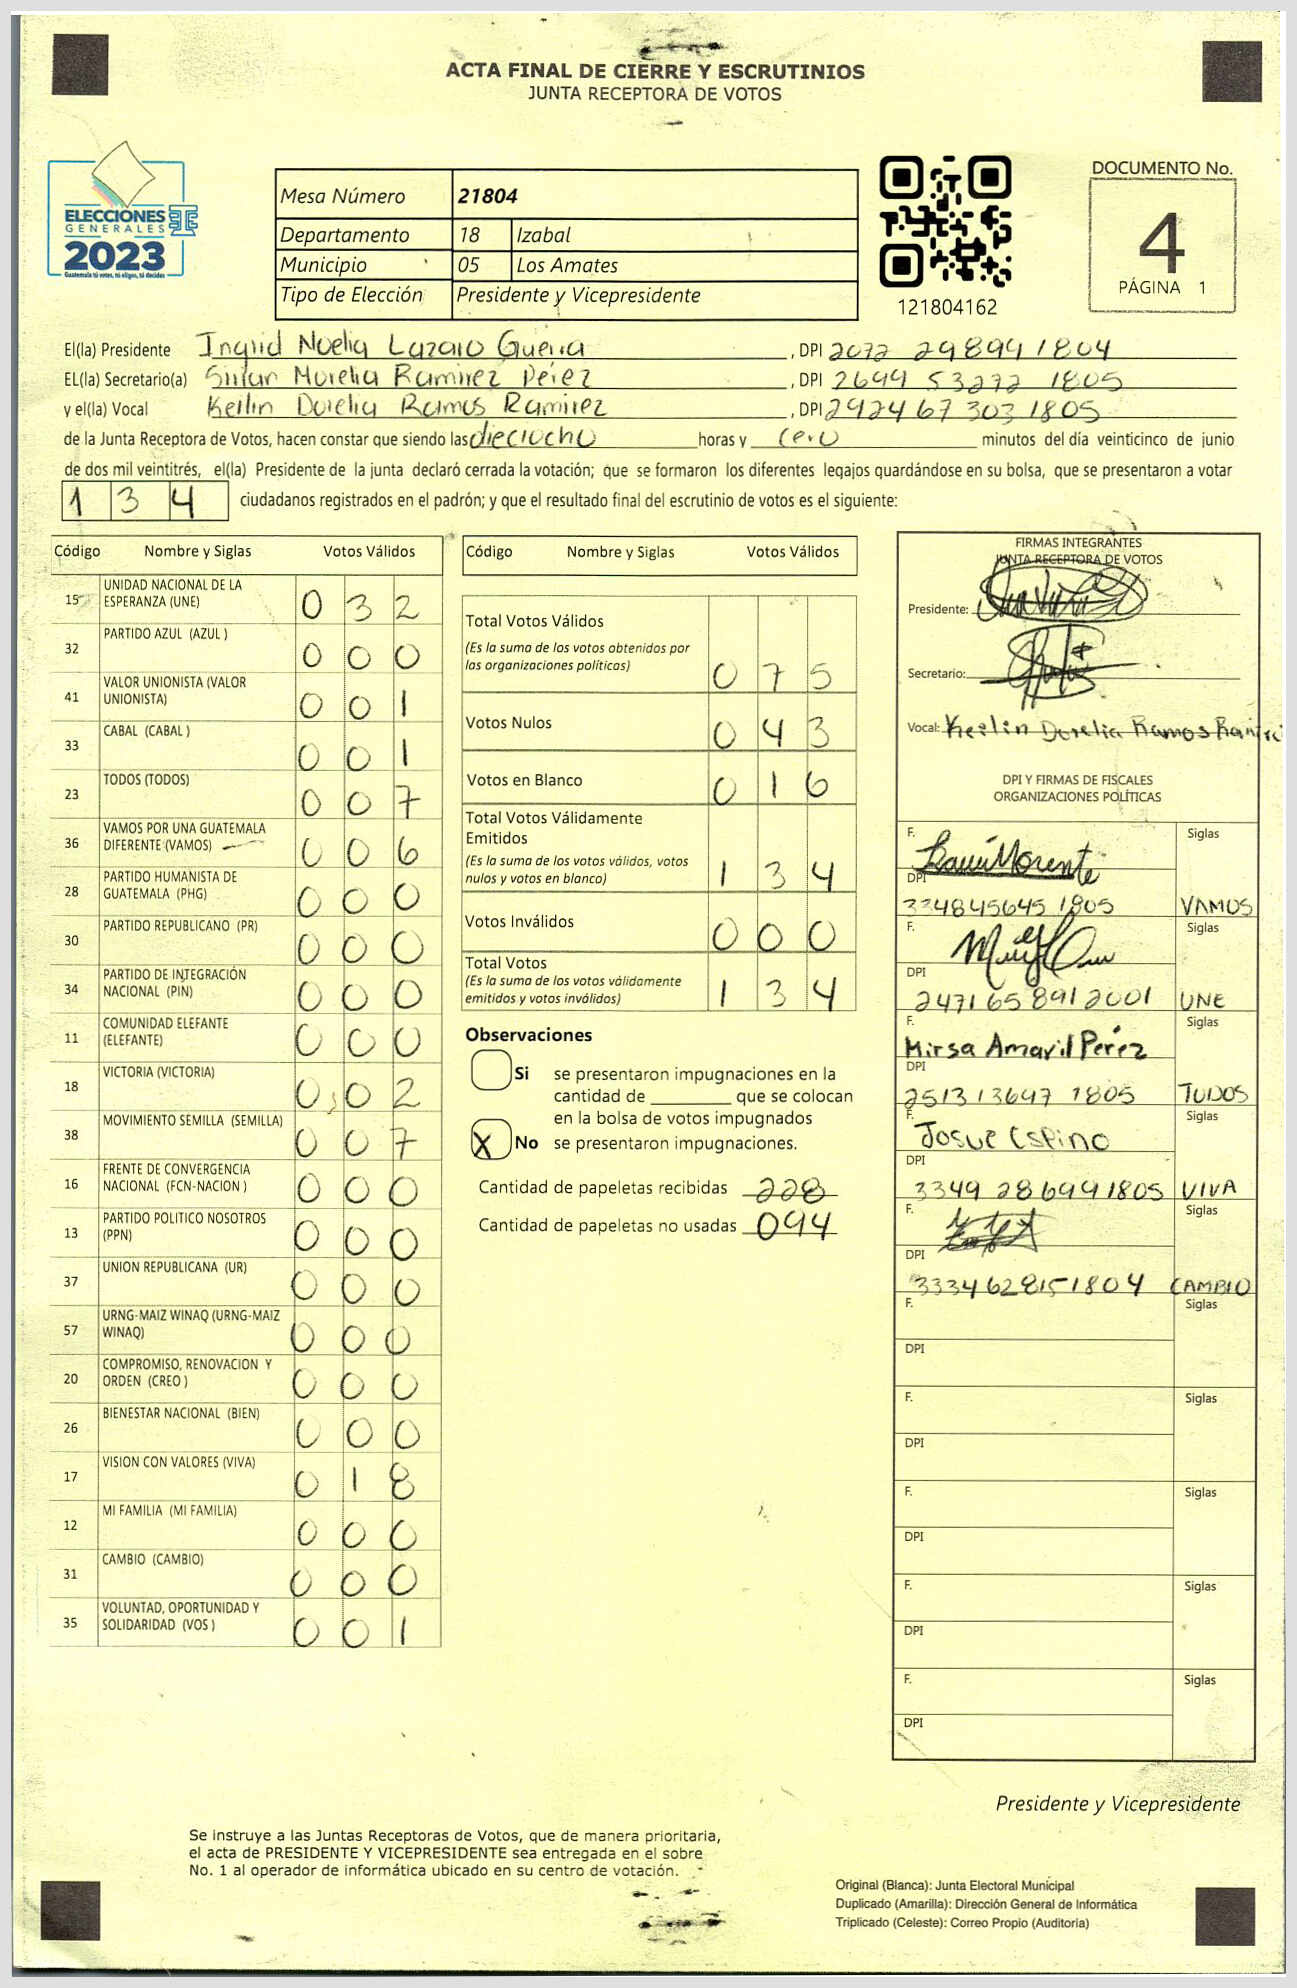 ACTA FINAL DE CIERRE Y ESCRUTINIOS
JUNTA RECEPTORA DE VOTOS
ELECCIONES
GENERALES
2023
Guatemala tú votas, tú eliges, tú decides
Mesa Número 21804
Departamento 18 Izabal
Municipio 05 Los Amates
Tipo de Elección Presidente y Vicepresidente
121804162
DOCUMENTO No.
4
PÁGINA 1
El(la) Presidente Ingrid Noelia Lazaro Guerra, DPI 2072 29899 1804
EL(la) Secretario(a) Morelia Ramirez Pérez, DPI 2699 53272 1805
y el(la) Vocal Keilin Dorelia Ramos Ramirez, DPI 2924 67303 1805
de la Junta Receptora de Votos, hacen constar que siendo las dieciocho horas y cero minutos del día veinticinco de junio
de dos mil veintitrés, el(la) Presidente de la junta declaró cerrada la votación; que se formaron los diferentes legajos guardándose en su bolsa, que se presentaron a votar
134 ciudadanos registrados en el padrón; y que el resultado final del escrutinio de votos es el siguiente:
Código Nombre y Siglas Votos Válidos
15 UNIDAD NACIONAL DE LA
ESPERANZA (UNE) 032
32 PARTIDO AZUL (AZUL ) 000
41 VALOR UNIONISTA (VALOR
UNIONISTA) 001
33 CABAL (CABAL ) 001
23 TODOS (TODOS) 007
36 VAMOS POR UNA GUATEMALA
DIFERENTE (VAMOS) 006
28 PARTIDO HUMANISTA DE
GUATEMALA (PHG) 000
30 PARTIDO REPUBLICANO (PR) 000
34 PARTIDO DE INTEGRACIÓN
NACIONAL (PIN) 000
11 COMUNIDAD ELEFANTE
(ELEFANTE) 000
18 VICTORIA (VICTORIA) 002
38 MOVIMIENTO SEMILLA (SEMILLA) 007
16 FRENTE DE CONVERGENCIA
NACIONAL (FCN-NACION ) 000
13 PARTIDO POLITICO NOSOTROS
(PPN) 000
37 UNION REPUBLICANA (UR) 000
57 URNG-MAIZ WINAQ (URNG-MAIZ
WINAQ) 000
20 COMPROMISO, RENOVACION Y
ORDEN (CREO ) 000
26 BIENESTAR NACIONAL (BIEN) 000
17 VISION CON VALORES (VIVA) 018
12 MI FAMILIA (MI FAMILIA) 000
31 CAMBIO (CAMBIO) 000
35 VOLUNTAD, OPORTUNIDAD Y
SOLIDARIDAD (VOS ) 001
Código Nombre y Siglas Votos Válidos
Total Votos Válidos
(Es la suma de los votos obtenidos por
las organizaciones políticas) 075
Votos Nulos 043
Votos en Blanco 016
Total Votos Válidamente
Emitidos
(Es la suma de los votos válidos, votos
nulos y votos en blanco) 134
Votos Inválidos 000
Total Votos
(Es la suma de los votos válidamente
emitidos y votos inválidos) 134
Observaciones
Si se presentaron impugnaciones en la
cantidad de ________ que se colocan
en la bolsa de votos impugnados
X No se presentaron impugnaciones.
Cantidad de papeletas recibidas 228
Cantidad de papeletas no usadas 094
FIRMAS INTEGRANTES
JUNTA RECEPTORA DE VOTOS
Presidente:
Secretario:
Vocal: Keilin Dorelia Ramos Ramire
DPI Y FIRMAS DE FISCALES
ORGANIZACIONES POLÍTICAS
F. Siglas
DPI
334845645 1805 VAMOS
F. Siglas
DPI
2471 65 891 2001 UNE
F. Siglas
Mirsa Amavil Perez
DPI
2513 13647 1805 TODOS
F. Siglas
Josue Espino
DPI
3349 28699 1805 VIVA
F. Siglas
DPI
3334628151804 CAMBIO
F. Siglas
DPI
F. Siglas
DPI
F. Siglas
DPI
F. Siglas
DPI
F. Siglas
DPI
Presidente y Vicepresidente
Se instruye a las Juntas Receptoras de Votos, que de manera prioritaria,
el acta de PRESIDENTE Y VICEPRESIDENTE sea entregada en el sobre
No. 1 al operador de informática ubicado en su centro de votación.
Original (Blanca): Junta Electoral Municipal
Duplicado (Amarilla): Dirección General de Informática
Triplicado (Celeste): Correo Propio (Auditoria)